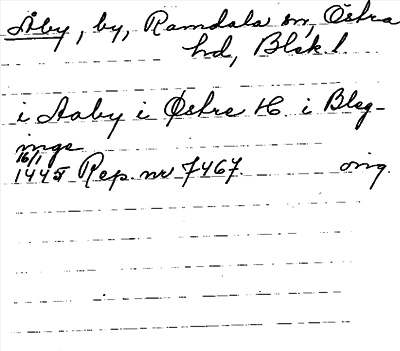 Åby, by, Ramdala sn, Östra
hd, Blek. l.
i Aaby i Østre H i Bleg-
inge
16/1
1445 Rep. nr 7467. orig.